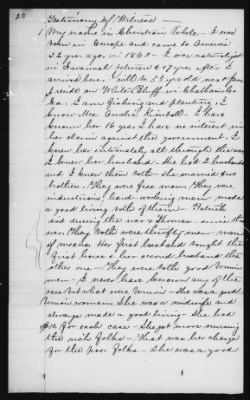 20
Testimony of Witness —
1 My name is Christian Yobele. I was
born in Europe and came to America
32 year ago, in 1860 — I was naturalized
in Savannah between 6 & 7 year after I
arrived here. I will be 53 year old next
I reside on White Bluff in Chatham Co
Ga. I am fishing and planting, I
know Mrs. Kimball — I have
known her 16 year I have no interest in
her claim against the government. I
knew her intimately all through the war
I knew her husband. She had 2 husbands
and I knew them both — she married two
brothers. They were free men. They were
industrious, hard working men — made
a good living both of them —
died during the war & Thomas — since the
war. They both were thrifty men — men
of means. Her first husband bought the
first house & her second husband the
other one — They were both good Union
men — I never have known any of the
race but what was Union — She was a good
Union woman. She was a midwife and
always made a good living — She had
$12 for each case — She got more nursing
the rich folks — That was her charge
for the poor folks — She was a good